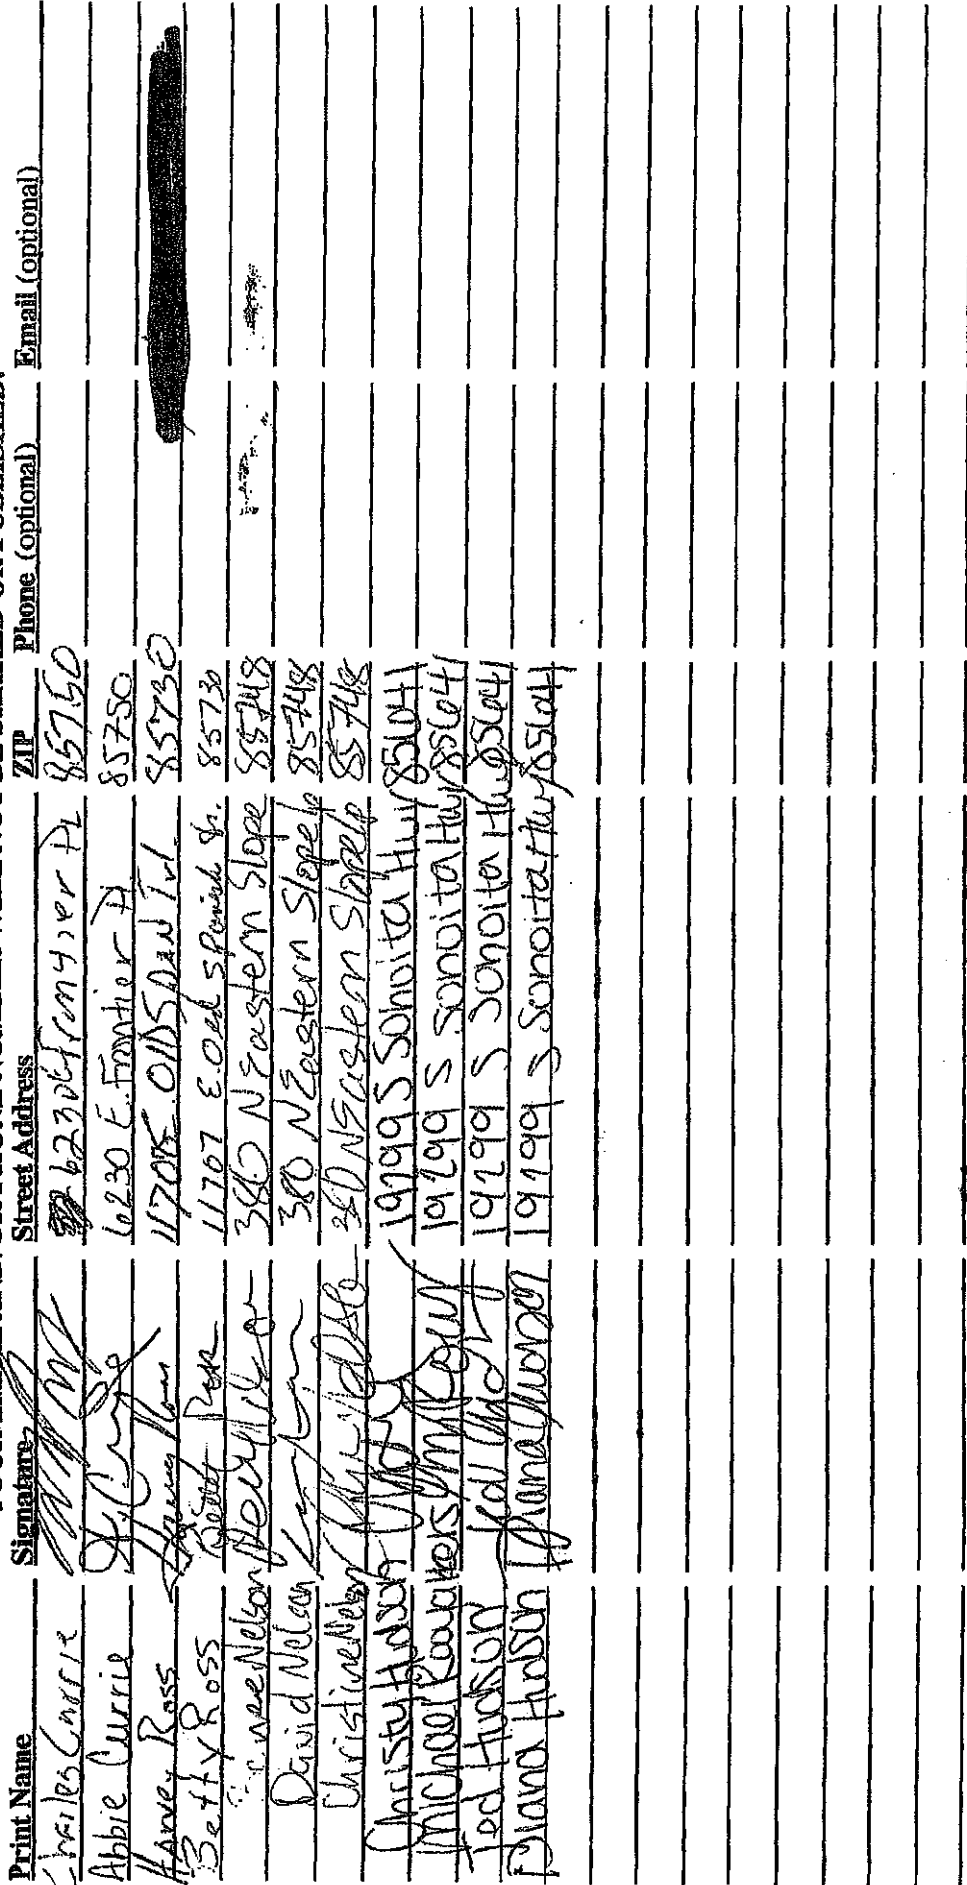 Print Name Signature Street Address ZIP Phone (optional) Email (optional)
Charles Currie 6230 E Frontier PL 85750
Abbie Currie 6230 E. Frontier Pl 85750
Harvey Ross 11705 E. Old SpAN Trl. 85730
Betty Ross Betty Ross 11767 E. Old Spanish Tr. 85730
Nelson 380 N Eastern Slope 85748
David Nelson 380 N Eastern Slope lp 85748
Christine Nelson 380 N Eastern Slope lp 85748
Christy Hudson 19299 S Sonoita Hwy 85641
Michael 19299 S Sonoita Hwy 85641
Tod Hudson 19299 S Sonoita Hwy 85641
Diana Hudson 19299 S Sonoita Hwy 85641